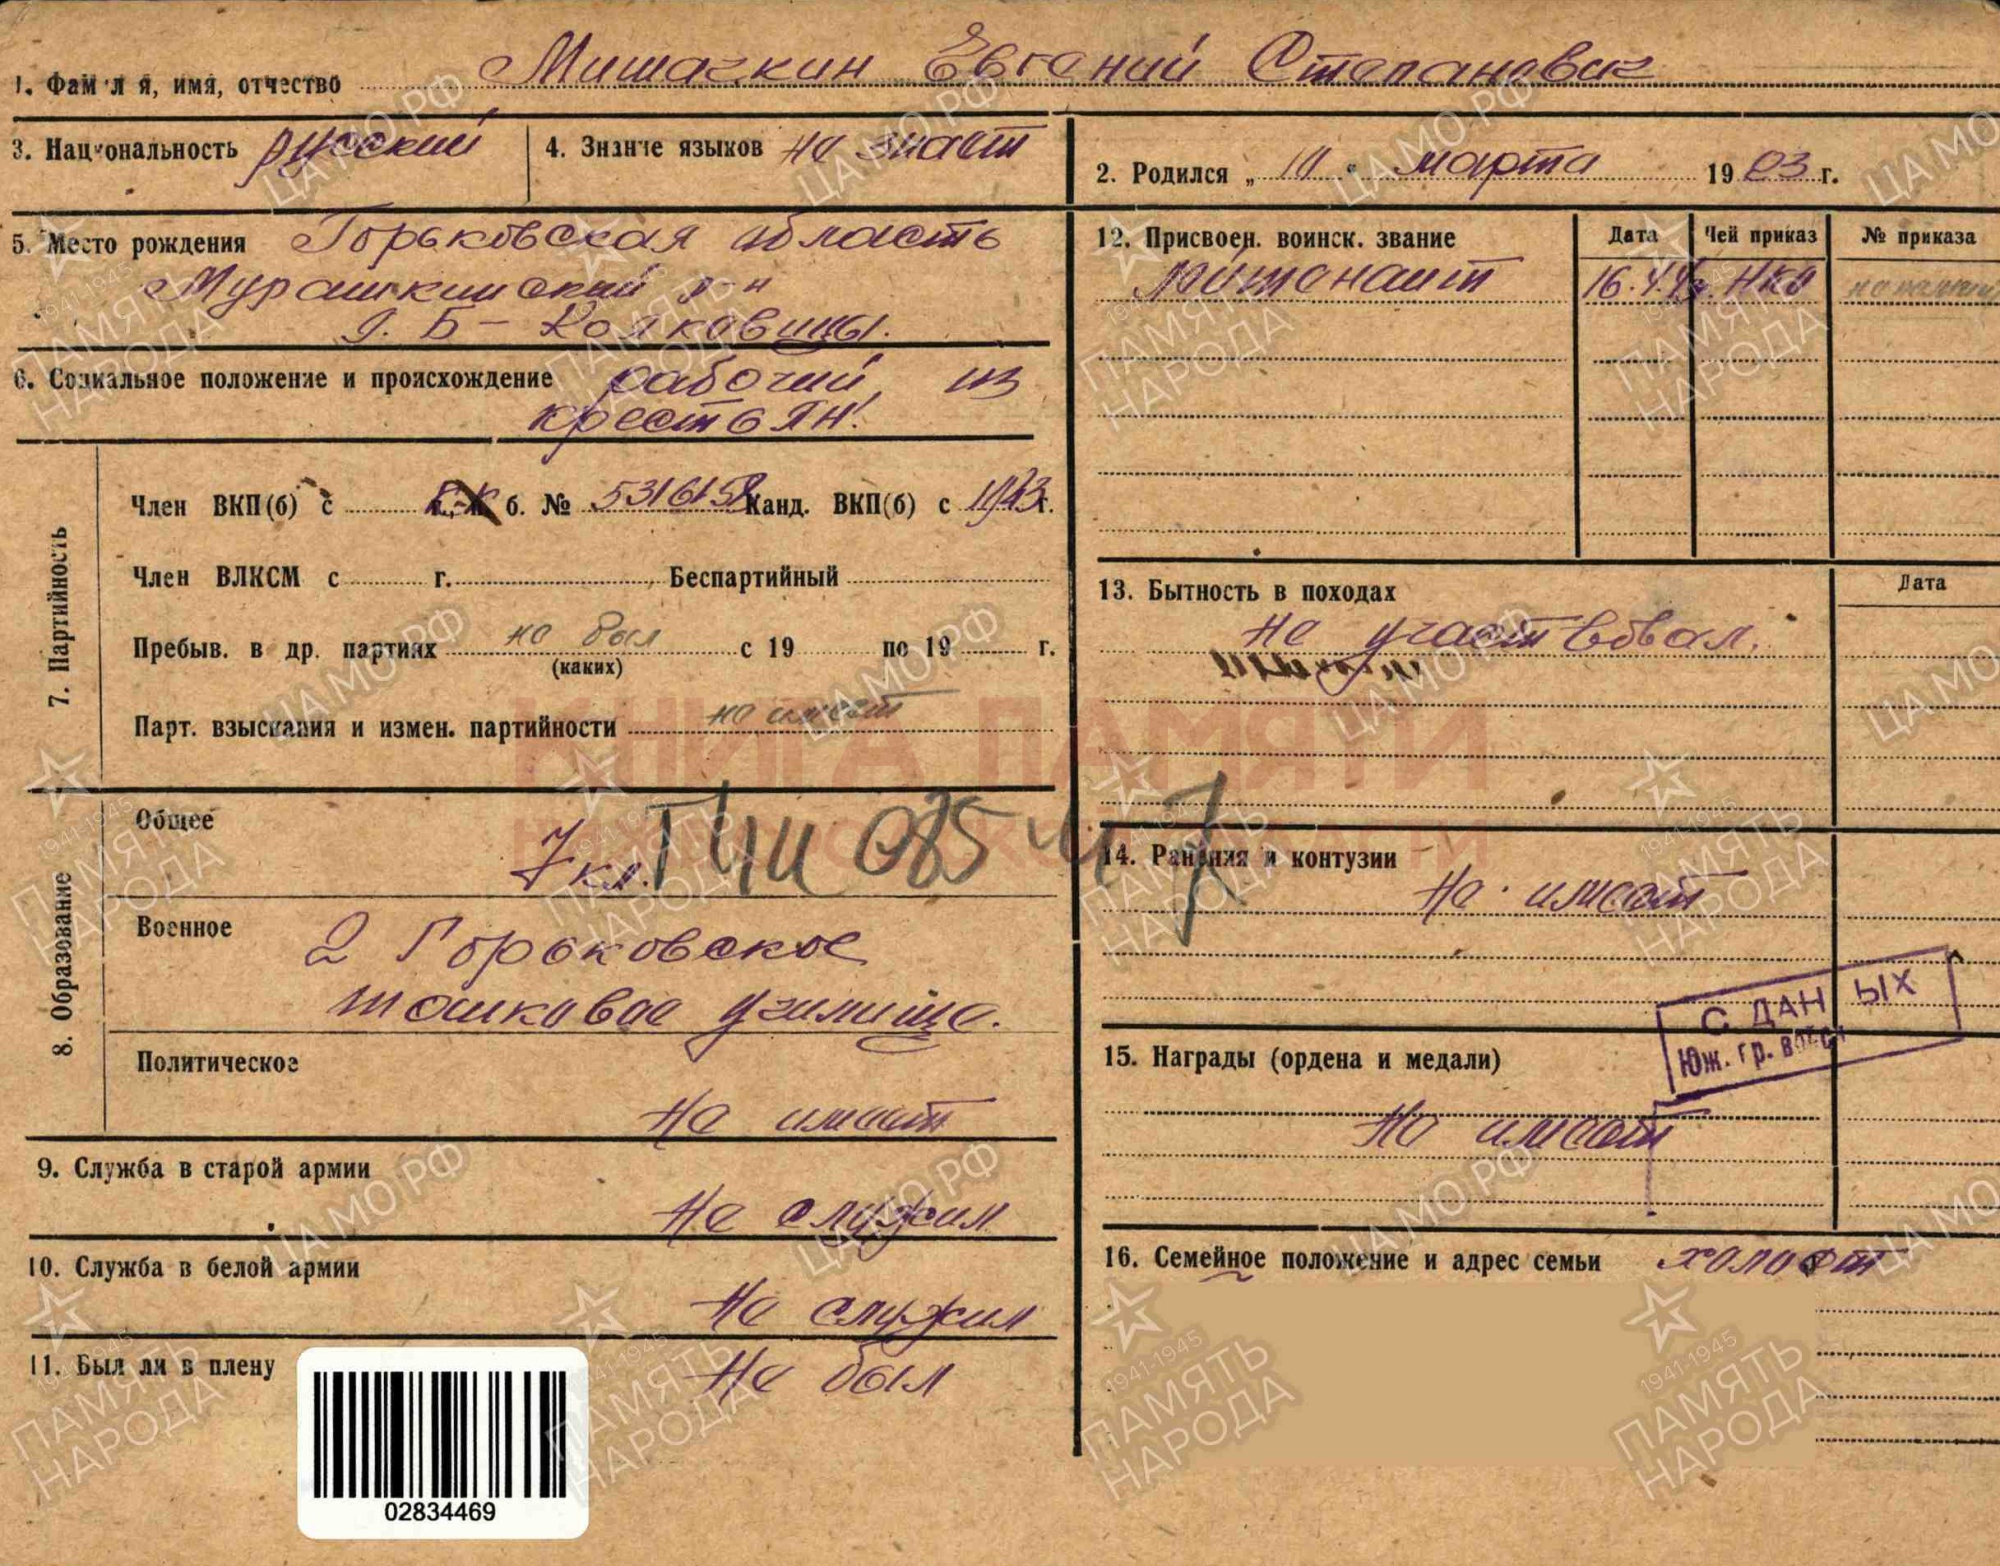 1. Фам л я, имя, отчество Мишагкин Евгений Степанович
3. Национальность русский 4. Знание языков не знает
2. Родился „ 10 “ марта 1903 г.
5. Место рождения Горьковская область
Мурашкинский р-н
Б-
6. Социальное положение и происхождение рабочий, из
крестьян!
7. Партийность
Член ВКП(б) с К/К б. № Канд. ВКП(б) с 1943 г.
Член ВЛКСМ с г. Беспартийный
Пребыв. в др. партиях не был с 19 по 19 г.
(каких)
Парт. взыскания и измен. партийности не имеет
8. Образование
Общее 7 кл.
Военное 2 Горьковское
танковое училище.
Политическое
Не имеет
9. Служба в старой армии
Не служил
10. Служба в белой армии
Не служил
11. Был ли в плену Не был
02834469
12. Присвоен. воинск. звание Дата Чей приказ № приказа
лейтенант НКО
13. Бытность в походах Дата
Не участвовал.
14. Ранения и контузии
Не имеет
С ДАН ЫХ
Юж. гр. войск
15. Награды (ордена и медали)
Не имеет
16. Семейное положение и адрес семьи холост
КНИГА ПАМЯТИ
ЦАМО.РФ
1941-1945
ПАМЯТЬ
НАРОДА